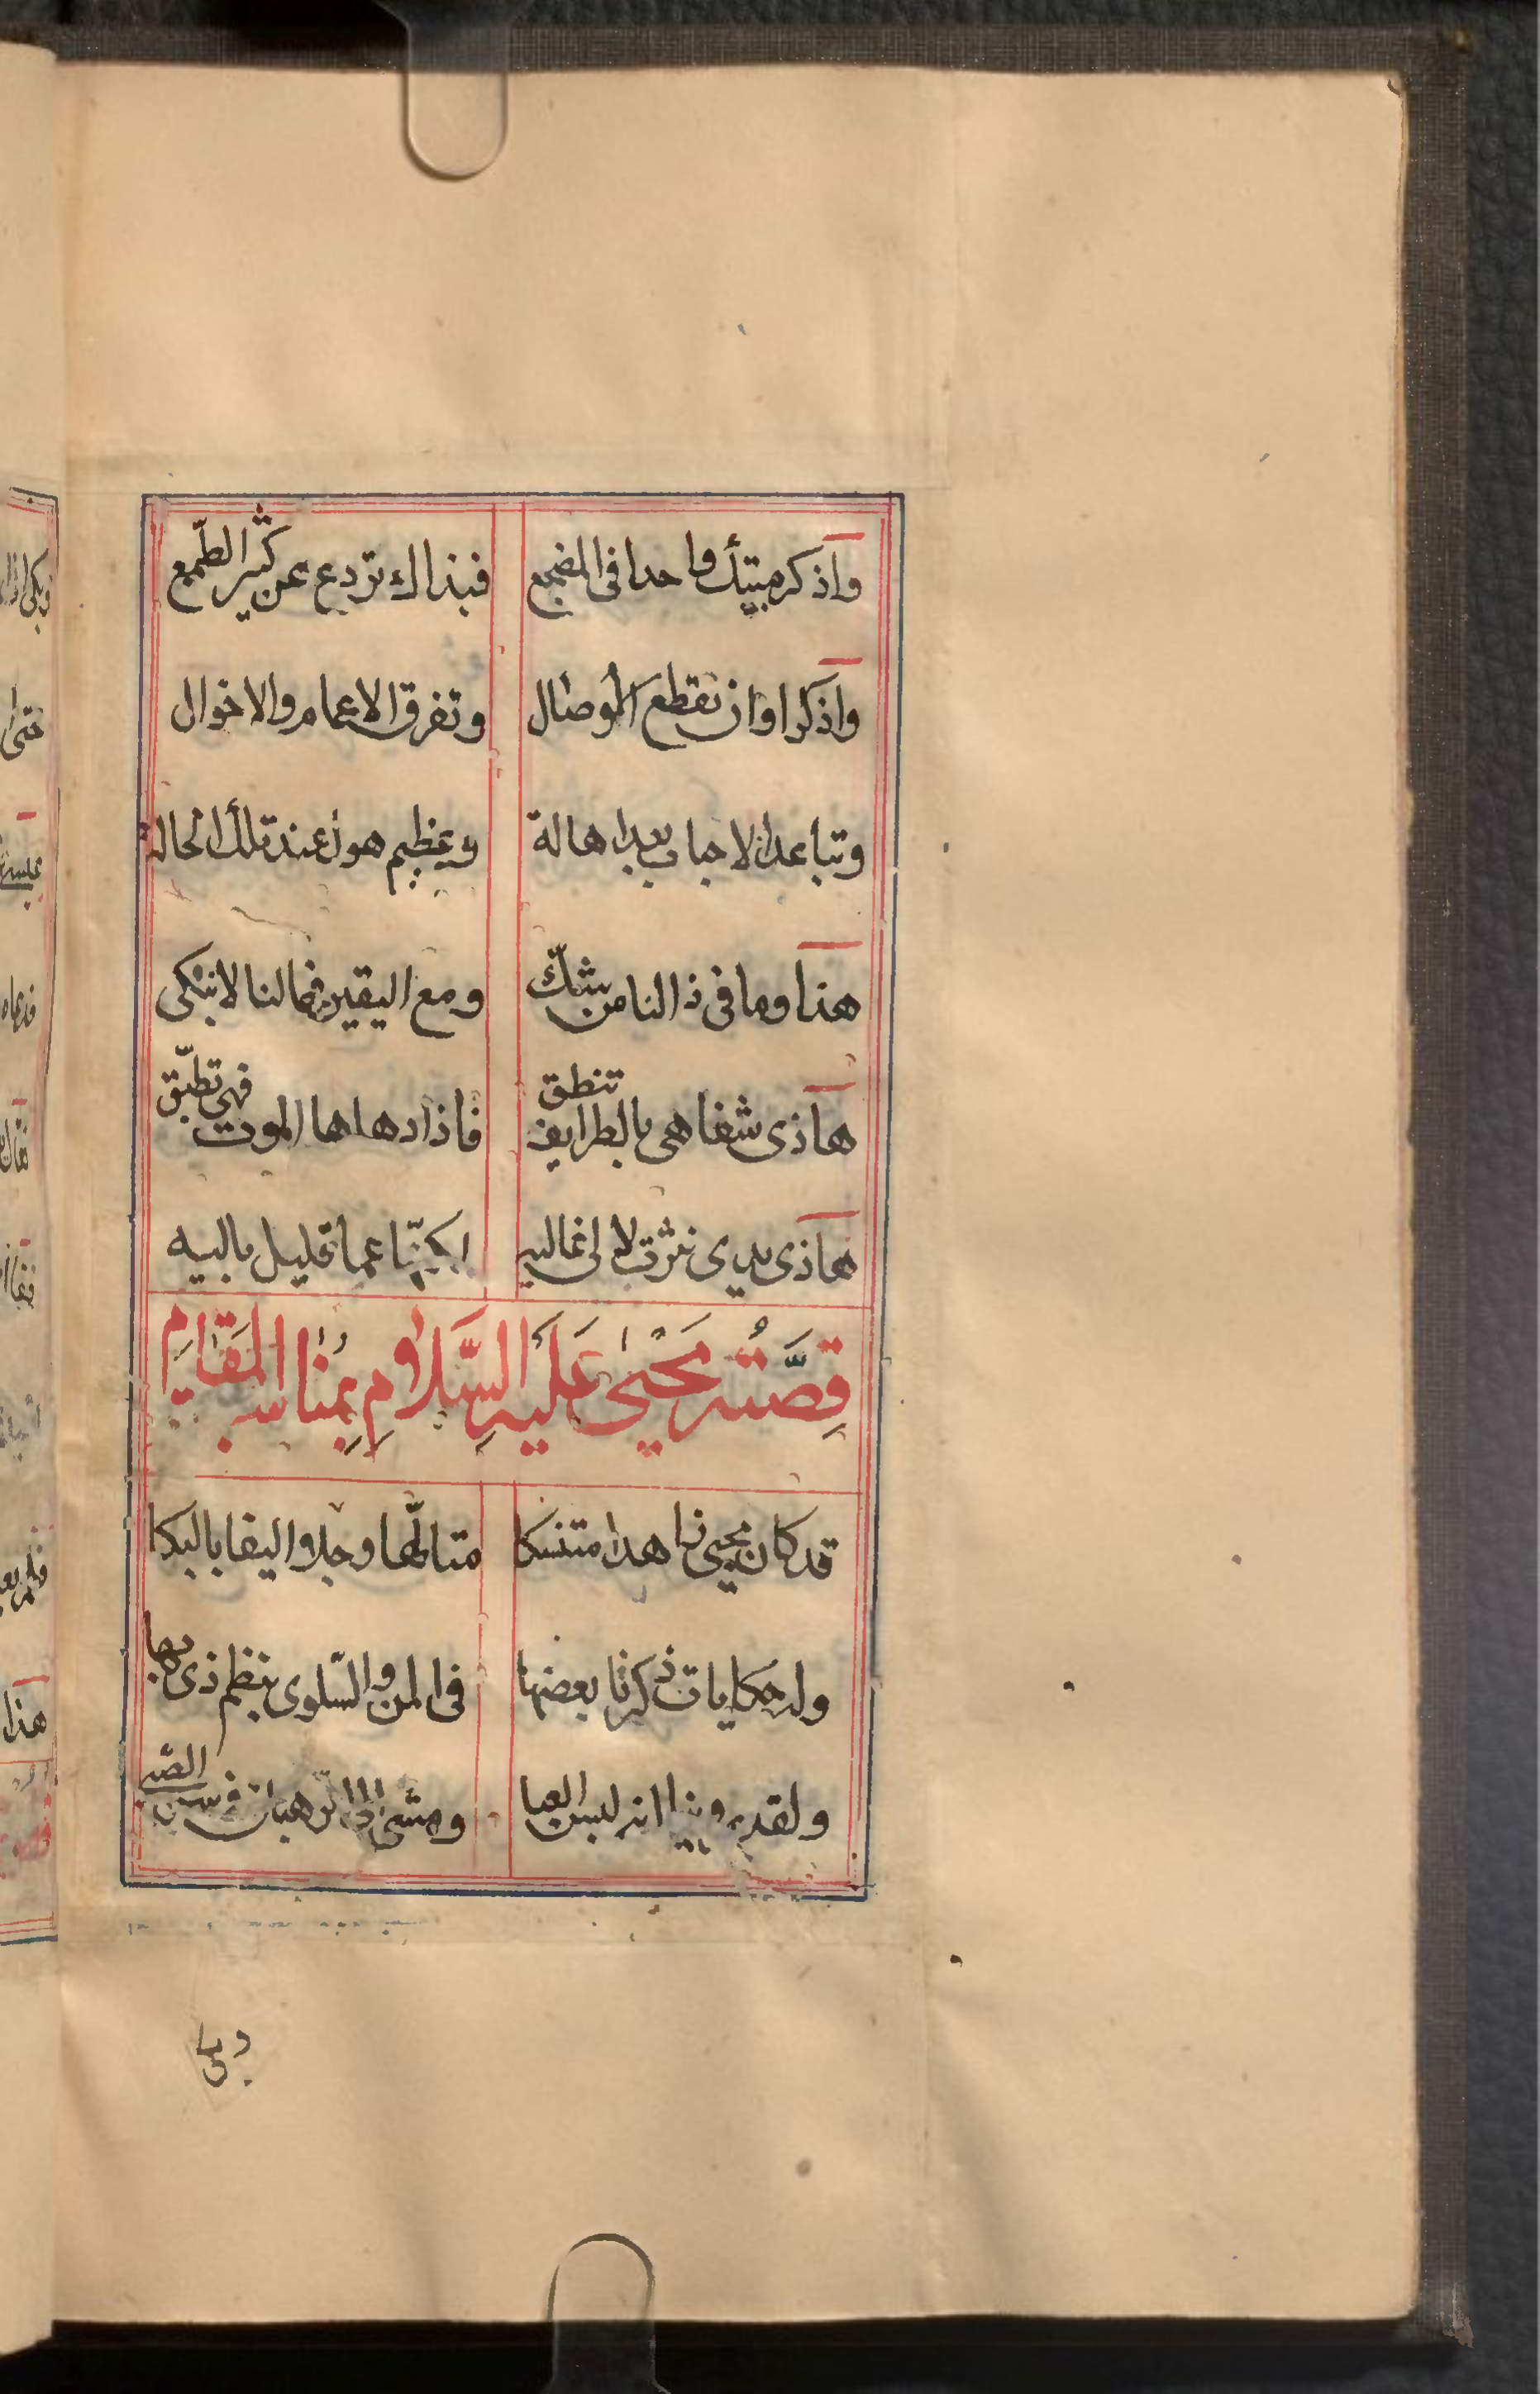 واذكر مبيتك واحدا فى المضجع فبذاك تردع عن كثير الطمع
واذكر اوان تقطع الموصال وتفرق الاعمام والاخوال
وتباعد الاحباب بعدا هالة وعظيم هول عند تلك الحالة
هذا وما فى ذا لنا من شكّ ومع اليقين فما لنا لا نبكى
هاذى شفاهى بالطرايف تنطق فاذا دهاها الموت فهى تطبّق
هاذى يدى نثرت لالى غاليه لكنّها عما قليل باليه
قِصَّتُه يَحْيٰى عَلَيْهِ السَّلَامِ بِمُنَاسب المَقَامِ
قد كان يحيى زاهدا متنسكا متالّها وجلا اليفا بالبكا
وله حكايات ذكرنا بعضها فى المن والسّلوى بنظم ذى بها
ولقد روينا انه لبس العبا ومشى الى الرهبان فى سن الصبى